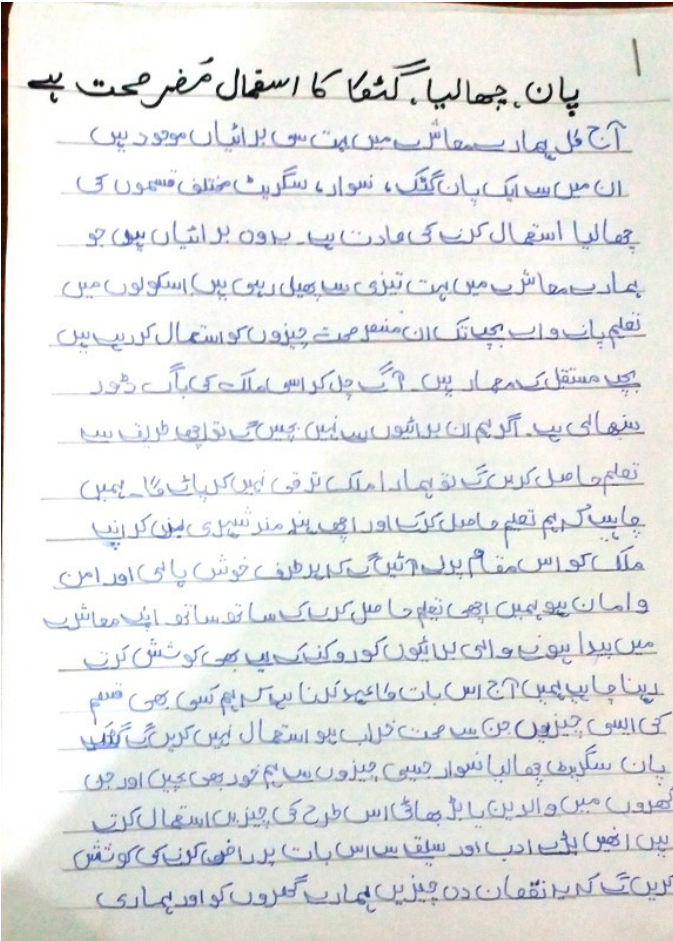 ا
پان، چھالیا، گٹکا کا استعمال مُضر صحت ہے
آج کل ہمارے معاشرے میں بہت سی برائیاں موجود ہیں
ان میں سے ایک پان گٹکے، نسوار، سگریٹ مختلف قسموں کی
چھالیا استعمال کرنے کی عادت ہے۔ یہ وہ برائیاں ہیں جو
ہمارے معاشرے میں بہت تیزی سے پھیل رہی ہیں اسکولوں میں
تعلیم پانے والے بچے تک ان مضر صحت چیزوں کو استعمال کر رہے ہیں
بچے مستقل کے معمار ہیں۔ آگے چل کر اسی ملک کی باگ ڈور
سنبھالنی ہے۔ اگر ہم ان برائیوں سے نہیں بچیں گے نہ اچھے طریقے سے
تعلیم حاصل کریں گے تو ہمارا ملک ترقی نہیں کر پائے گا۔ ہمیں
چاہیے کہ ہم تعلیم حاصل کر کے اور اچھے ہنر مند شہری بن کر اپنے
ملک کو اس مقام پر لے آئیں گے کہ ہر طرف خوش حالی اور امن
و امان ہو ہمیں اچھی تعلیم حاصل کرنے کے ساتھ ساتھ اپنے معاشرے
میں پیدا ہونے والی برائیوں کو روکنے کے لیے بھی کوشش کرتے
رہنا چاہیے ہمیں آج اس بات کا عہد کرنا ہے کہ ہم کسی بھی قسم
کی ایسی چیزوں جن سے صحت خراب ہو استعمال نہیں کریں گے گٹکے
پان سگریٹ چھالیا نسوار جیسی چیزوں سے ہم خود بھی بچیں اور جن
گھروں میں والدین یا بڑے بھائی اس طرح کی چیزیں استعمال کرتے
ہیں انھیں بڑے ادب اور سلیقے سے اس بات پر راضی کرنے کی کوشش
کریں گے کہ یہ نقصان دہ چیزیں ہمارے گھروں کو اور ہماری